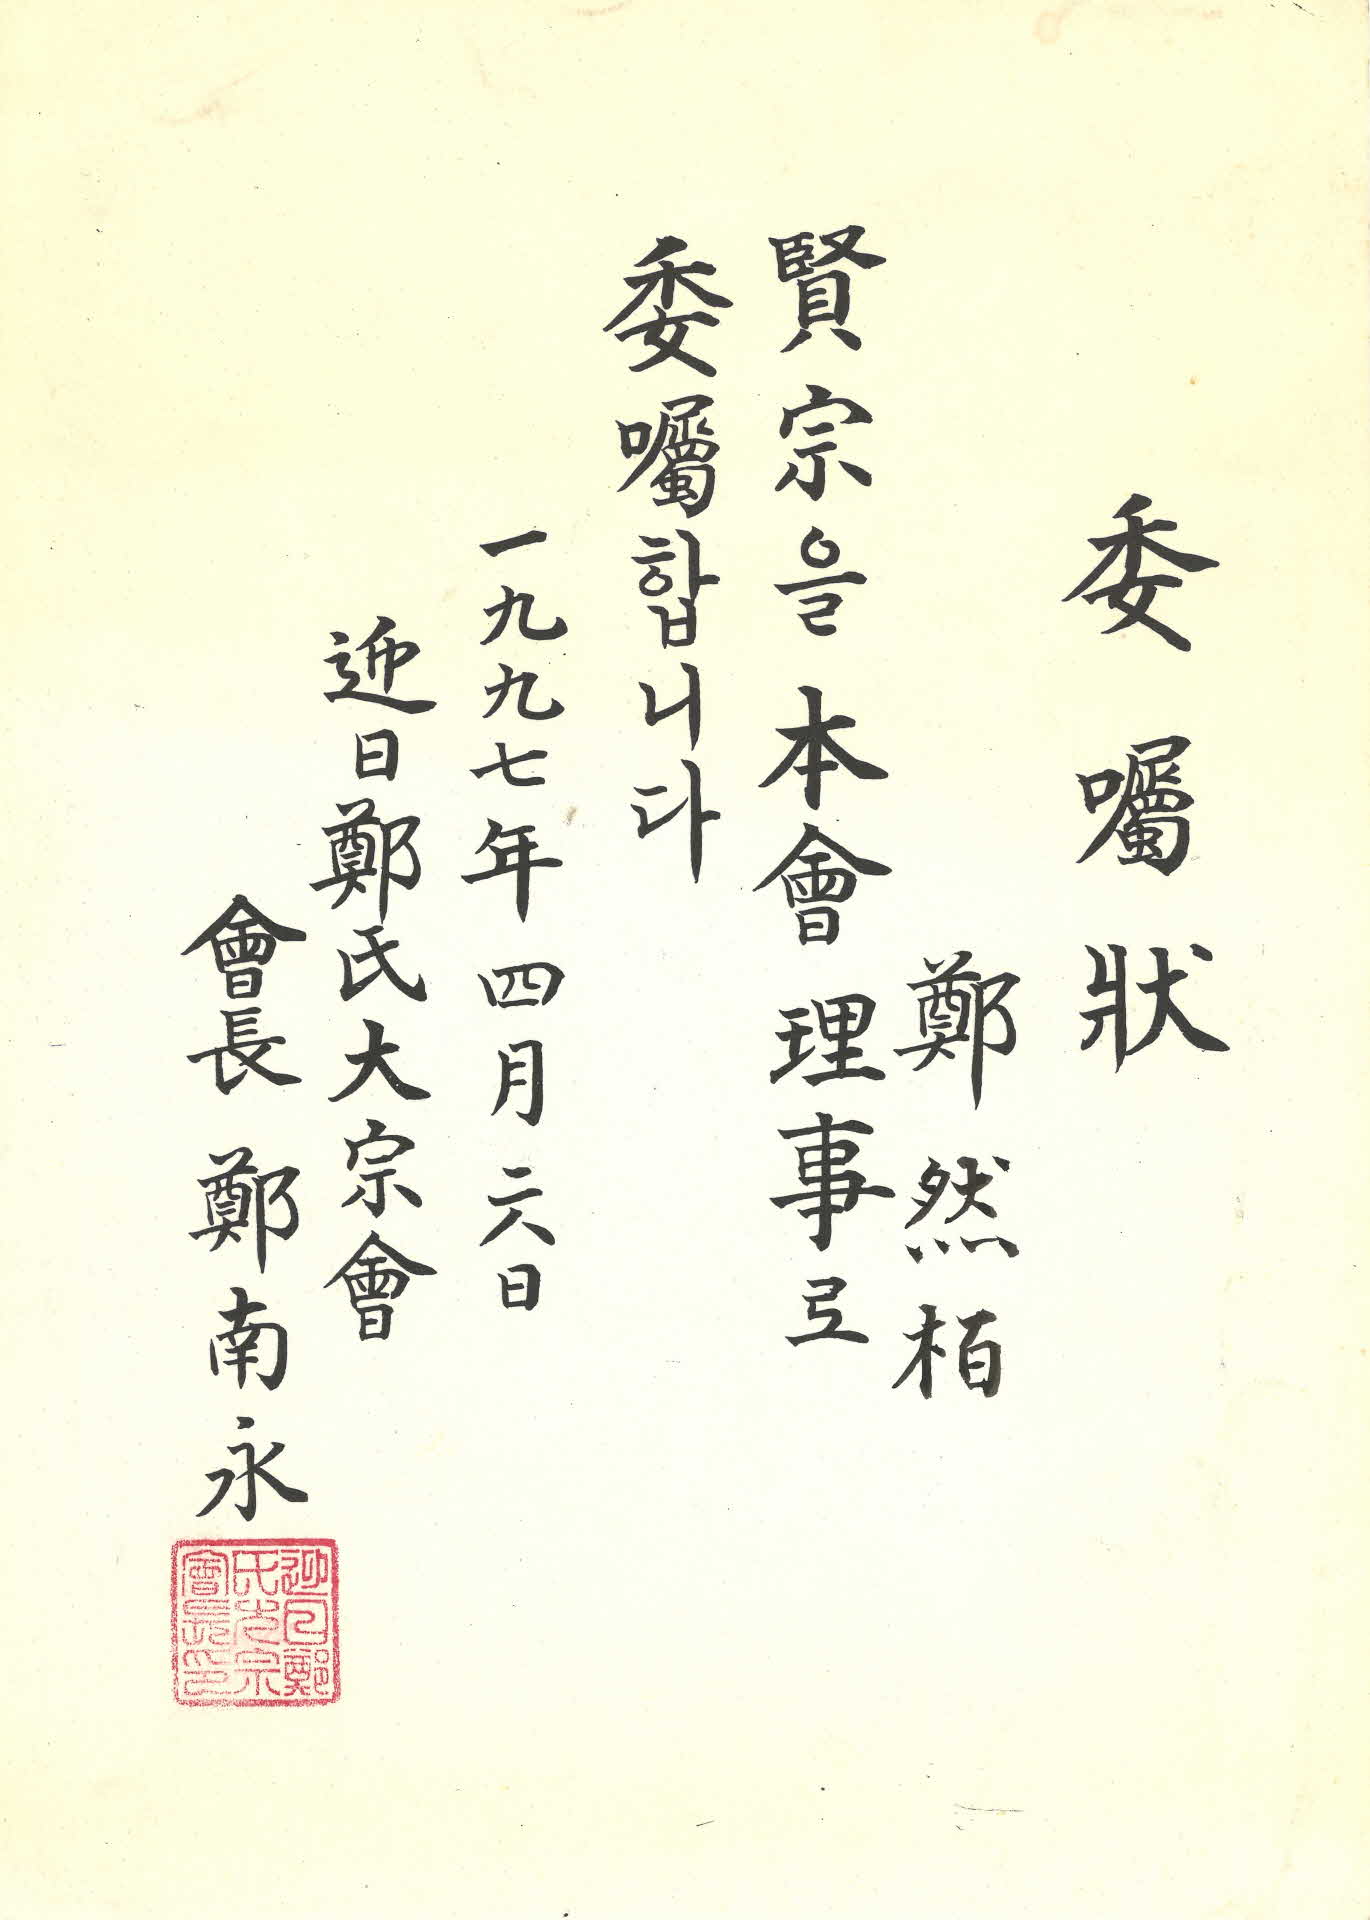 委囑狀
鄭然栢
賢宗을 本會 理事로
委囑합니다
一九九七年 四月 二八日
迎日鄭氏大宗會
會長 鄭南永
迎日鄭
氏大宗
會長印